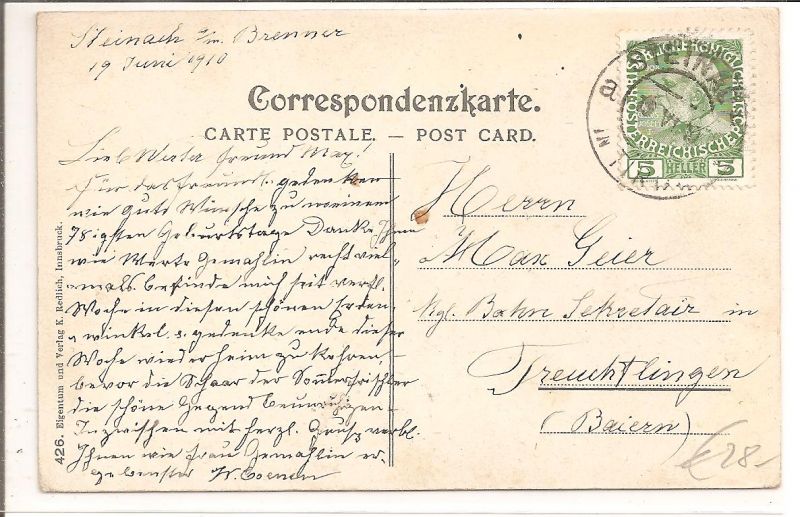 Steinach a/m. Brenner
19 Juni 1910
Correspondenzkarte.
CARTE POSTALE. — POST CARD.
Lieb Werter Freund Max!
Für das freundl. gedenken
wie Guts Wünsche zu meinem
78igsten Geburtstage Danke Ihnen
wie Werte Gemahlin recht viel-
mals. befinde mich seit verfl.
Woche in diesem schönen Erden-
winkel, u. gedenke ende dieser
Woche wieder heim zu kehren,
bevor die Schaar der Sommerfrischler
die schöne Gegend beunruhigen
Inzwischen mit herzl. Gruß verbl.
Ihnen wie Frau Gemahlin er-
gebenster W. Coenen
Herrn
Max Geier
Kgl. Bahn Sekretair in
Treuchtlingen
(Baiern)
426. Eigentum und Verlag K. Redlich, Innsbruck.
ÖSTERREICHISCHE
5 HELLER 5
STEINACH
€28-